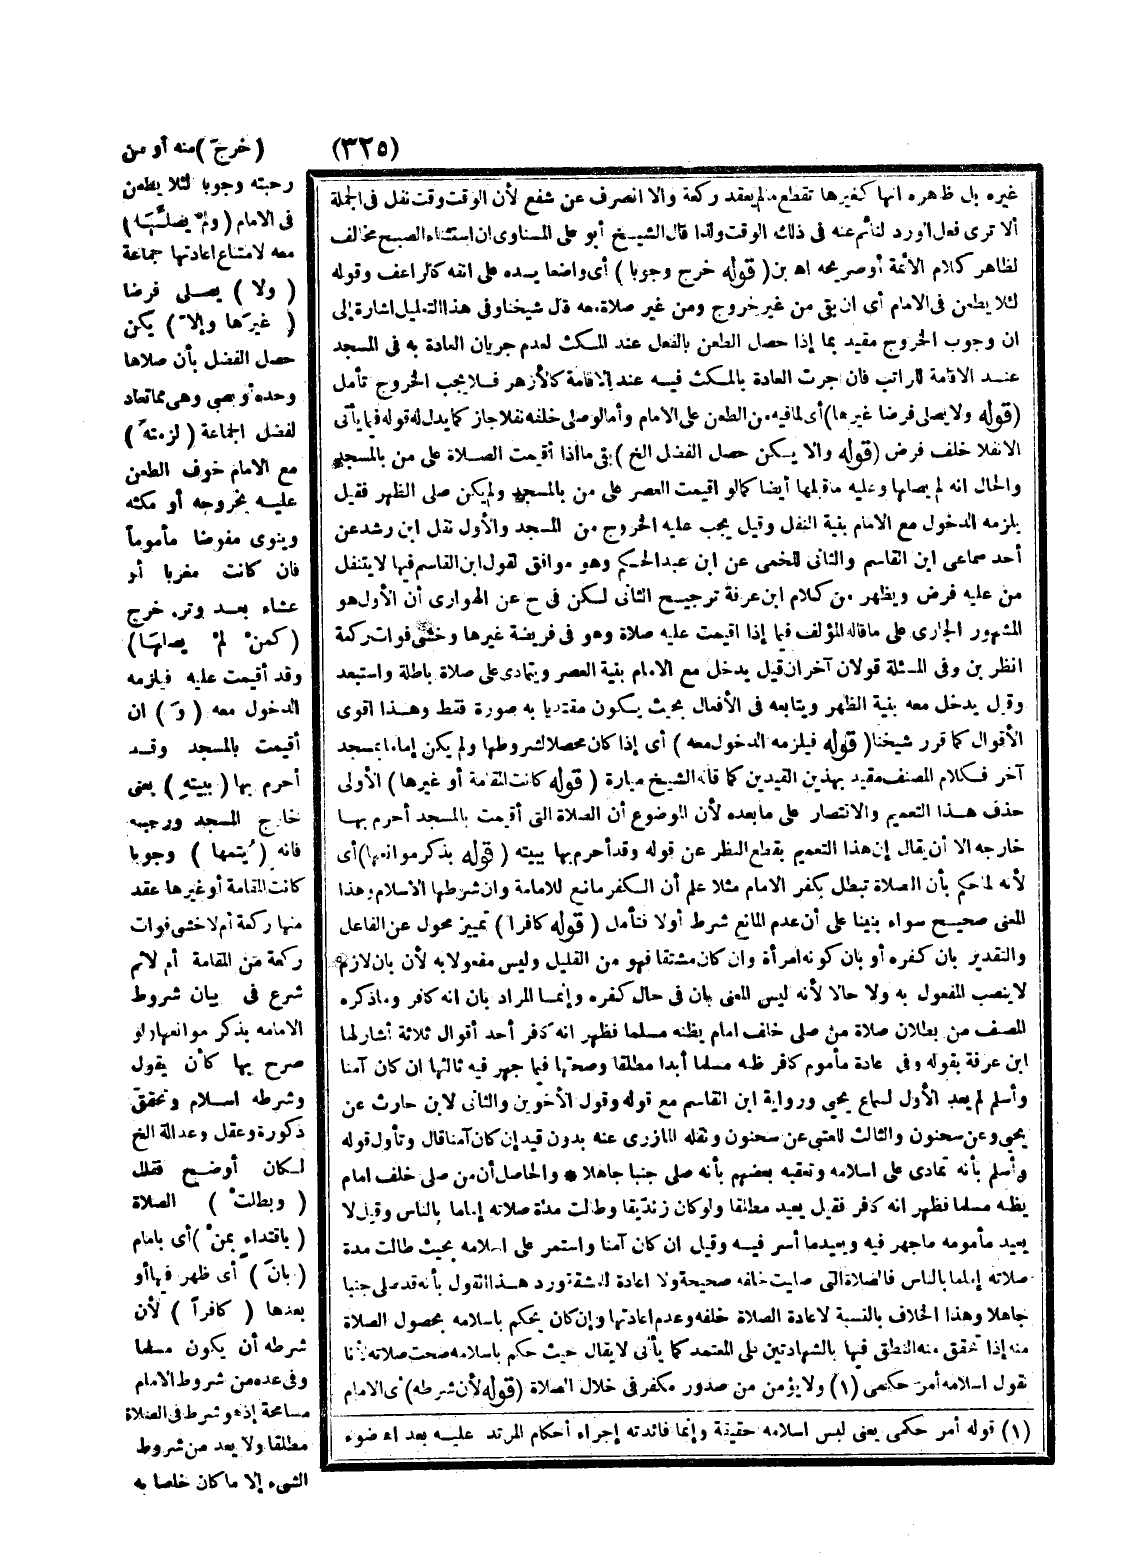 (٣٢٥)
غيره بل ظهره انها كغيرها تقطع مالم يعقد ركعة والا انصرف عن شفع لأن الوقت وقت نفل فى الجملة
ألا ترى فعل الورد لنائم عنه فى ذلك الوقت ولذا قال الشيخ أبو على المسناوى ان استثناء الصبح مخالف
لظاهر كلام الأئمة أو صريحه اه بن (قوله خرج وجوبا) أى واضعا يده على انفه كالراعف وقوله
لئلا يطعن فى الامام أى ان بقى من غير خروج ومن غير صلاة معه قال شيخنا وفى هذا التعليل اشارة إلى
ان وجوب الخروج مقيد بما إذا حصل الطعن بالفعل عند المكث لعدم جريان العادة به فى المسجد
عند الاقامة للراتب فان جرت العادة بالمكث فيه عند الاقامة كالأزهر فلا يجب الخروج تأمل
(قوله ولا يصلى فرضا غيرها) أى لما فيه من الطعن على الامام وأما لو صلى خلفه نفلا جاز كما يدل له قوله فيما يأتى
الا نفلا خلف فرض (قوله والا يكن حصل الفضل الخ) بقى ما اذا أقيمت الصلاة على من بالمسجد
والحال انه لم يصلها وعليه ما قبلها أيضا كما لو اقيمت العصر على من بالمسجد ولم يكن صلى الظهر فقيل
يلزمه الدخول مع الامام بنية النفل وقيل يجب عليه الخروج من المسجد والأول نقل ابن رشد عن
أحد سماعى ابن القاسم والثانى للخمى عن ابن عبد الحكم وهو موافق لقول ابن القاسم فيها لا يتنفل
من عليه فرض ويظهر من كلام ابن عرفة ترجيح الثانى لكن فى ح عن الهوارى أن الأول هو
المشهور الجارى على ما قاله المؤلف فيما إذا اقيمت عليه صلاة وهو فى فريضة غيرها وخشى فوات ركعة
انظر بن وفى المسئلة قولان آخران قيل يدخل مع الامام بنية العصر ويتمادى على صلاة باطلة واستبعد
وقيل يدخل معه بنية الظهر ويتابعه فى الأفعال بحيث يكون مقتديا به صورة فقط وهذا اقوى
الأقوال كما قرر شيخنا (قوله فيلزمه الدخول معه) أى إذا كان محصلا لشروطها ولم يكن إماما بمسجد
آخر فكلام المصنف مقيد بهذين القيدين كما قاله الشيخ ميارة (قوله كانت المقامة أو غيرها) الأولى
حذف هذا التعميم والاقتصار على ما بعده لأن الموضوع أن الصلاة التى أقيمت بالمسجد أحرم بها
خارجه الا أن يقال إن هذا التعميم بقطع النظر عن قوله وقد أحرم بها ببيته (قوله بذكر موانعها) أى
لأنه لما حكم بأن الصلاة تبطل بكفر الامام مثلا علم أن الكفر مانع للامامة وان شرطها الاسلام وهذا
المعنى صحيح سواء بنينا على أن عدم المانع شرط أولا فتأمل (قوله كافرا) تمييز محول عن الفاعل
والتقدير بان كفره أو بان كونه امرأة وان كان مشتقا فهو من القليل وليس مفعولا به لأن بان لازم
لا ينصب المفعول به ولا حالا لأنه ليس المعنى بان فى حال كفره وإنما المراد بان انه كافر وماذكره
المصنف من بطلان صلاة من صلى خلف امام يظنه مسلما فظهر انه كافر أحد أقوال ثلاثة أشار لها
ابن عرفة بقوله وفى اعادة مأموم كافر ظنه مسلما أبدا مطلقا وصحتها فيما جهر فيه ثالثها ان كان آمنا
وأسلم لم يعد الأول لسماع يحيى ورواية ابن القاسم مع قوله وقول الأخوين والثانى لابن حارث عن
يحيى وعن سحنون والثالث للعتبى عن سحنون ونقله المازرى عنه بدون قيد إن كان آمنا قال وتأول قوله
وأسلم بأنه تمادى على اسلامه وتعقبه بعضهم بأنه صلى جنبا جاهلا * والحاصل أن من صلى خلف امام
يظنه مسلما فظهر انه كافر فقيل يعيد مطلقا ولو كان زنديقا وطالت مدة صلاته إماما بالناس وقيل لا
يعيد مأمومه ماجهر فيه ويعيدما أسر فيه وقيل ان كان آمنا واستمر على اسلامه بحيث طالت مدة
صلاته إماما بالناس فالصلاة التى صليت خلفه صحيحة ولا اعادة للمشقة ورد هذا القول بأنه قد صلى جنبا
جاهلا وهذا الخلاف بالنسبة لاعادة الصلاة خلفه وعدم اعادتها وإن كان يحكم باسلامه بحصول الصلاة
منه إذا تحقق منه النطق فيها بالشهادتين على المعتمد كما يأتى لا يقال حيث حكم باسلامه صحت صلاته لأنا
نقول اسلامه أمر حكمى (١) ولا يؤمن من صدور مكفر فى خلال الصلاة (قوله لأن شرطه) أى الامام
(١) قوله أمر حكمى يعنى ليس اسلامه حقيقة وإنما فائدته إجراء أحكام المرتد عليه بعد اه ضوء
(خرج) منه أو من
رحبته وجوبا لئلا يطعن
فى الامام (ولم يصلها)
معه لامتناع اعادتها جماعة
(ولا) يصلى فرضا
(غيرها وإلا) يكن
حصل الفضل بأن صلاها
وحده أو بصبى وهى مما تعاد
لفضل الجماعة (لزمته)
مع الامام خوف الطعن
عليه بخروجه أو مكثه
وينوى مفوضا مأموماً
فان كانت مغربا أو
عشاء بعد وتر خرج
(كمن لم يصلها)
وقد أقيمت عليه فيلزمه
الدخول معه (و) ان
أقيمت بالمسجد وقد
أحرم بها (ببيته) يعنى
خارج المسجد ورحبته
فانه (يتمها) وجوبا
كانت المقامة أو غيرها عقد
منها ركعة أم لا خشى فوات
ركعة من المقامة أم لا ثم
شرع فى بيان شروط
الامامه بذكر موانعها ولو
صرح بها كأن يقول
وشرطه اسلام وتحقق
ذكورة وعقل وعدالة الخ
لكان أوضح فقال
(وبطلت) الصلاة
(باقتداء بمن) أى بامام
(بان) أى ظهر فيها أو
بعدها (كافراً) لأن
شرطه أن يكون مسلما
وفى عده من شروط الامام
مسامحة إذ هو شرط فى الصلاة
مطلقا ولا يعد من شروط
الشىء إلا ما كان خاصا به